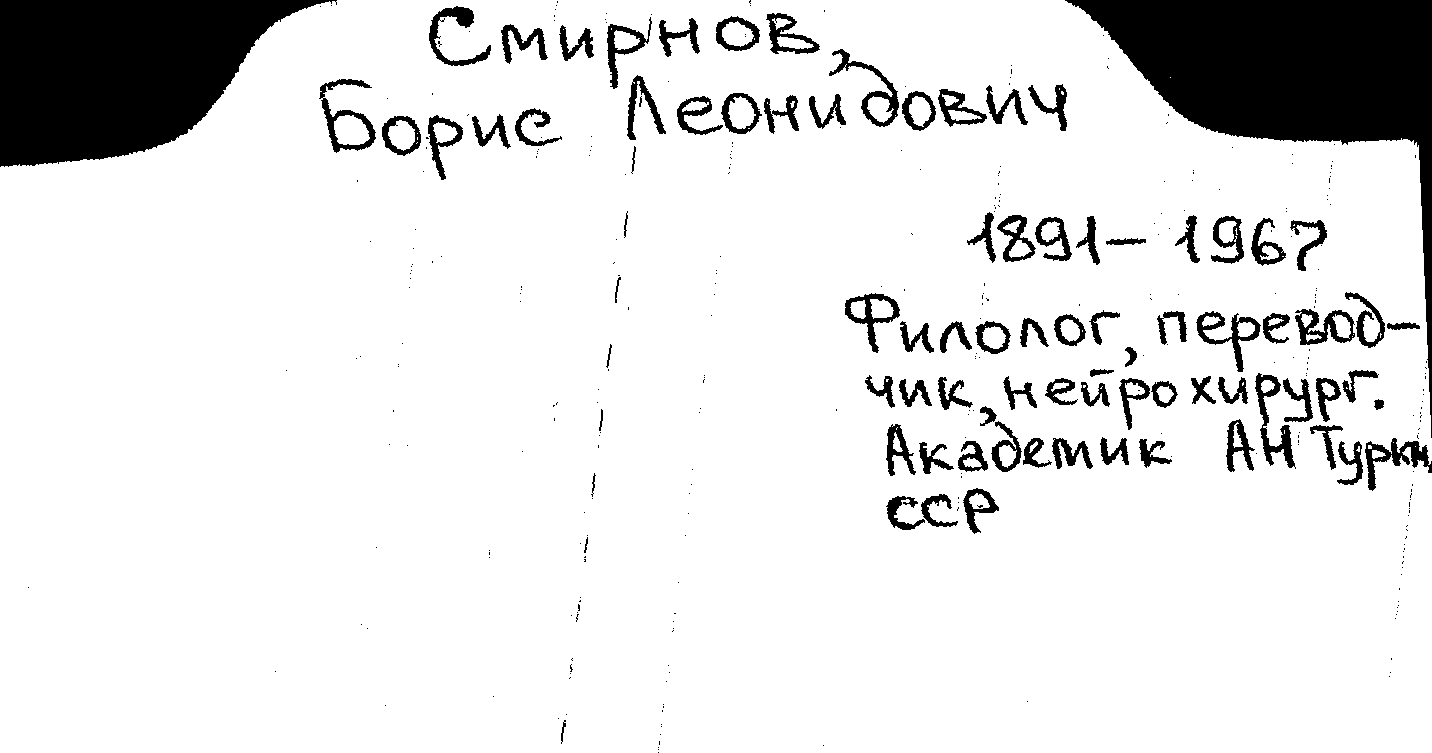 Смирнов,
Борис Леонидович
1891 – 1967
Филолог, перевод-
чик, нейрохирург.
Академик АН Туркм.
ССР